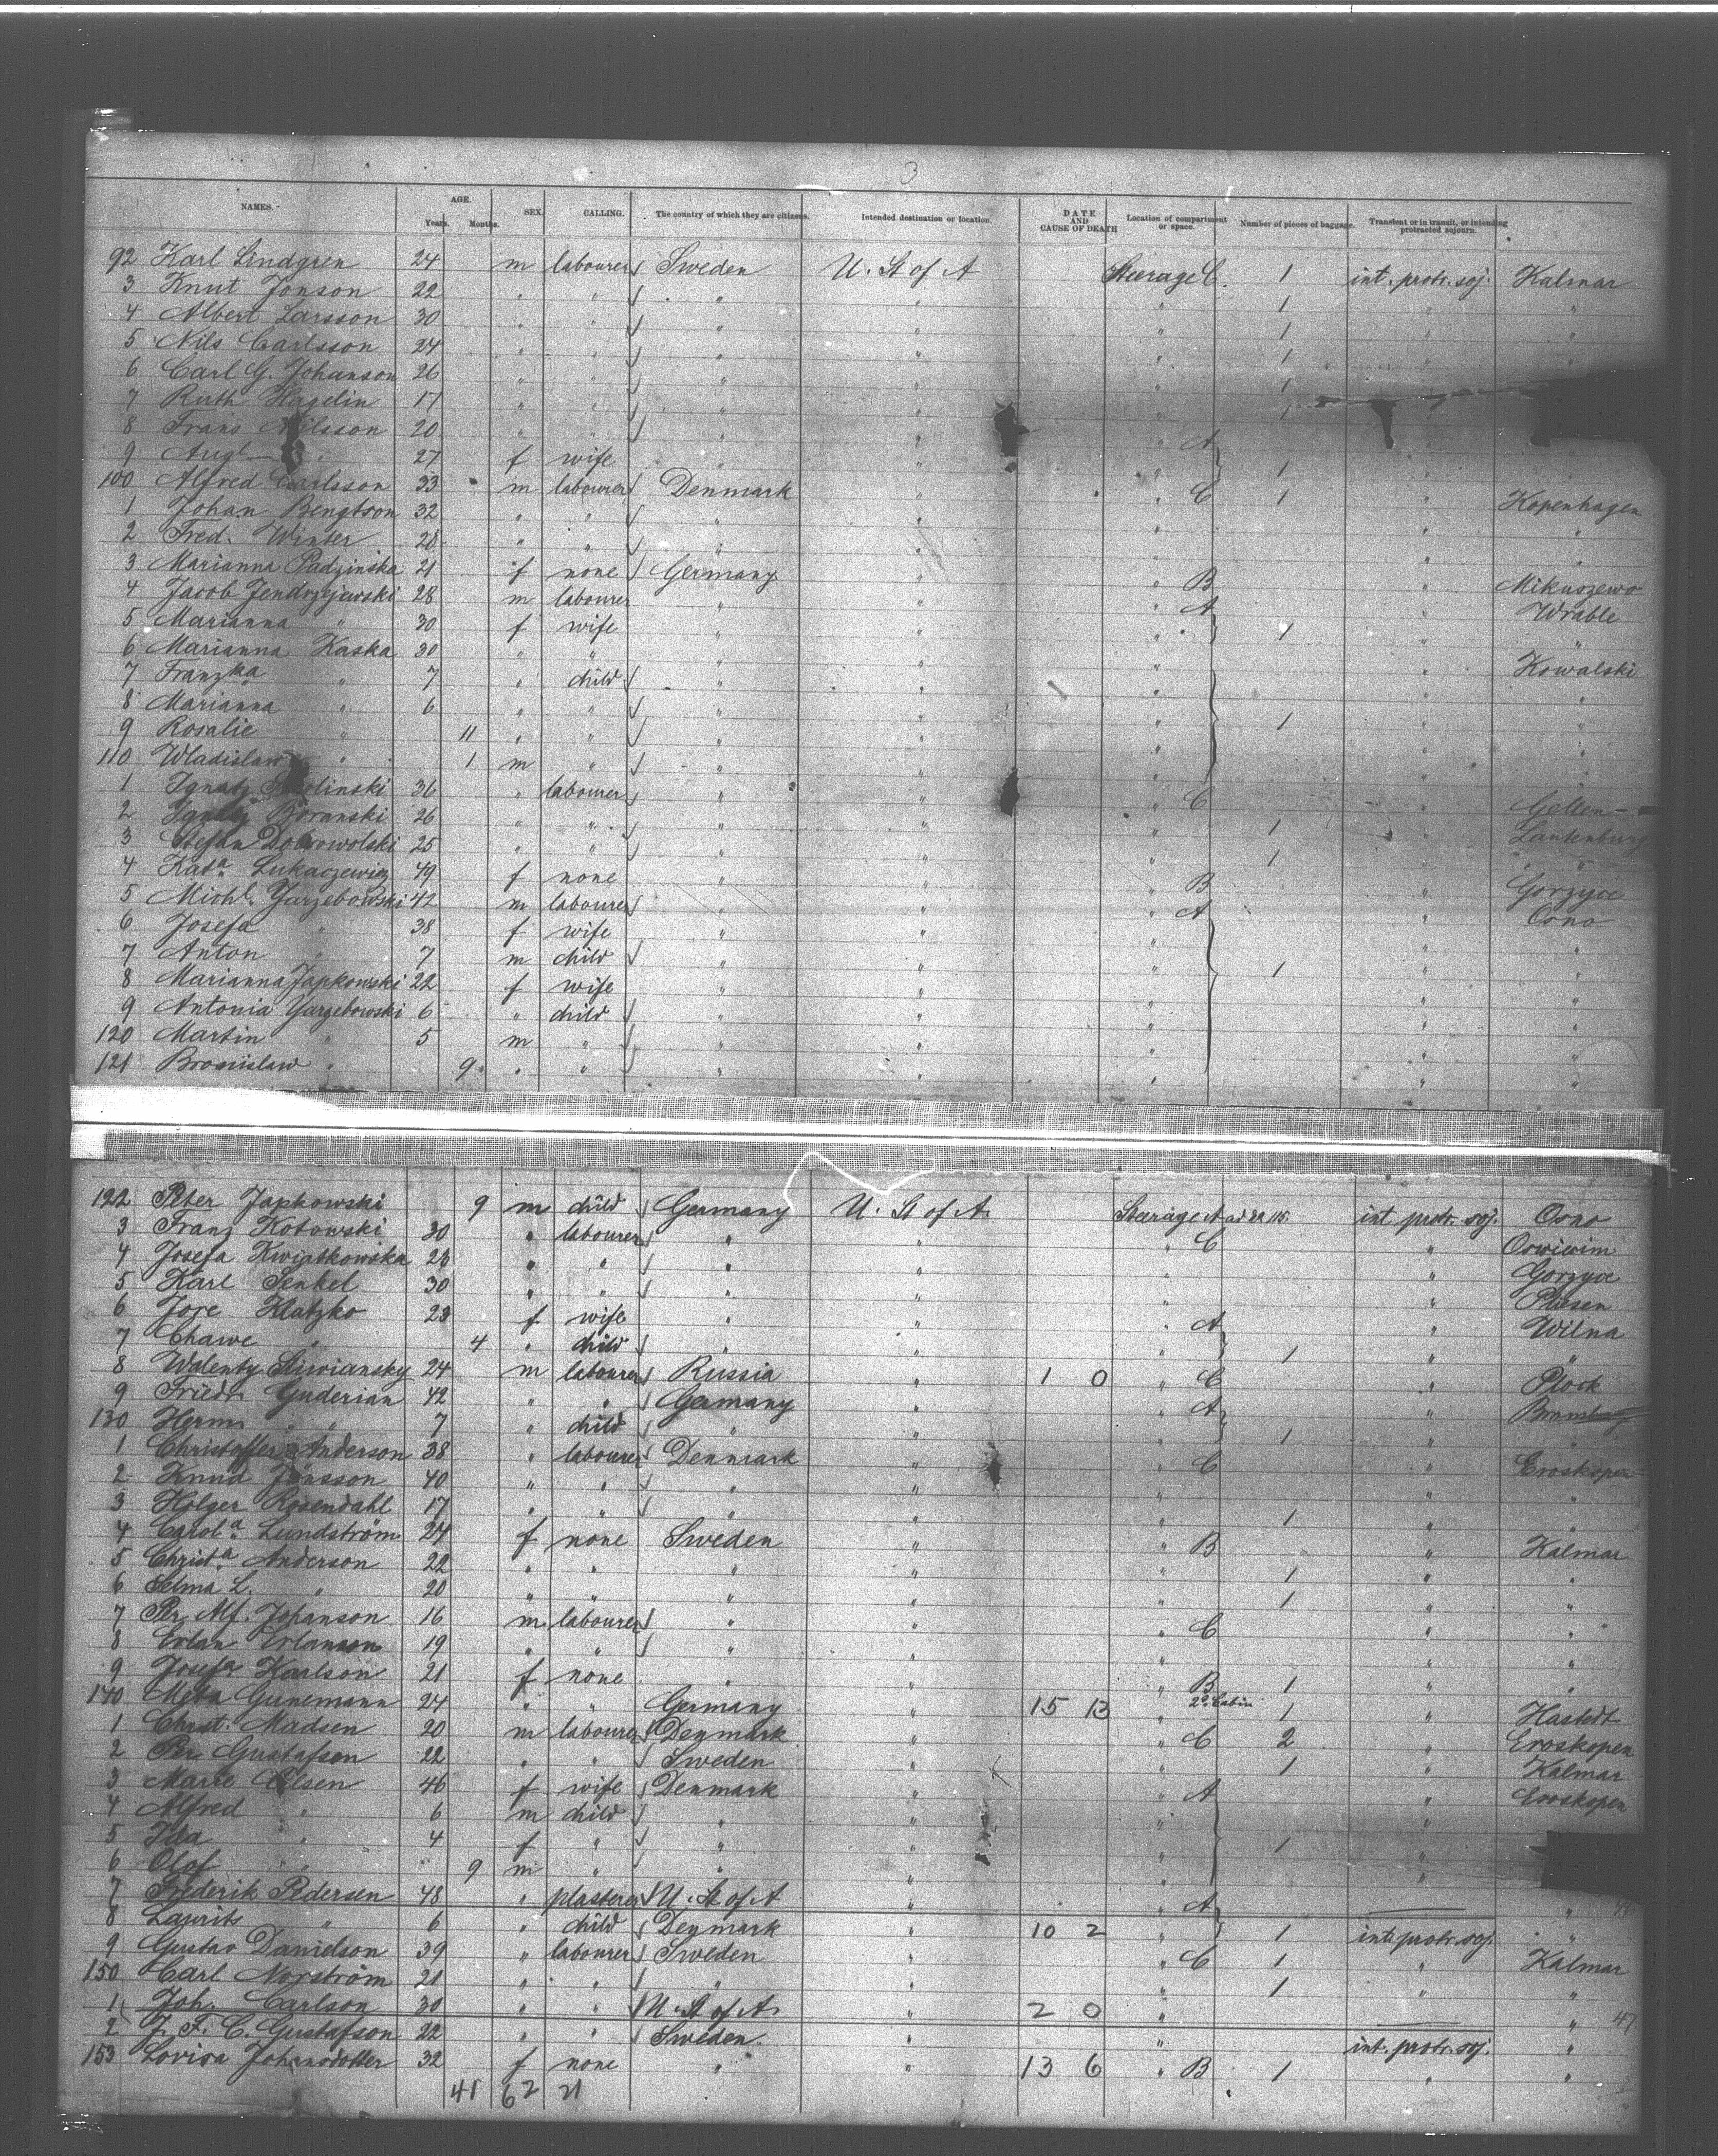 3
NAMES. AGE. Years. Months. SEX. CALLING. The country of which they are citizens. Intended destination or location. DATE AND CAUSE OF DEATH Location of compartment or space. Number of pieces of baggage. Transient or in transit, or intending protracted sojourn.
92 Karl Lindgren 24 m labourer Sweden U. St of A Steerage C. 1 int. protr. soj. Kalmar
3 Knut Jonson 22 " " " " " 1 " "
4 Albert Larsson 30 " " " " " 1 " "
5 Nils Carlsson 24 " " " " " 1 "
6 Carl G. Johanson 26 " " " " " 1
7 Ruth Hagelin 17 " " " " " 1
8 Frans Nilsson 20 " " " " " A
9 " 27 f wife " " " 1 "
100 Alfred Carlsson 33 m labourer Denmark " " C 1 " Kopenhagen
1 Johan Bengtson 32 " " " " " " "
2 Fred. Winter 28 " " " " " " "
3 Marianna Padzinska 21 f none Germany " " B " Mikuszewo
4 Jacob Jendrzejewski 28 m labourer " " " A " Wrable
5 Marianna " 30 f wife " " " 1 " "
6 Marianna Kaska 30 " " " " " " Kowalski
7 Franzka " 7 " child " " " " "
8 Marianna " 6 " " " " " 1 " "
9 Rosalie " 11 " " " " " " "
110 Wladislaw " 1 m " " " " " "
1 36 " labourer " " " C "
2 Boranski 26 " " " " " 1 " Lautenburg
3 Stefan Dobrowolski 25 " " " " " 1 " "
4 Kata Lukaczewicz 49 f none " " " B " Gorzyce
5 Michl. Yarzebowski 42 m labourer " " " A " Osno
6 Josefa " 38 f wife " " " " "
7 Anton " 7 m child " " " 1 " "
8 Marianna Japkowski 22 f wife " " " " "
9 Antonia Yarzebowski 6 " child " " " " "
120 Martin " 5 m " " " " " "
121 Bronislaw " 9 " " " " " " "
122 Peter Japkowski 9 m child Germany U. St of A. Steerage A int protr. soj. Osno
3 Franz Kotowski 30 " labourer " " " C "
4 Josefa Kwiatkowska 28 " " " " " " Gorzyce
5 Karl Senkel 30 " " " " " "
6 Jore Klatzko 23 f wife " " " A " Wilna
7 Chawe " 4 " child " " " 1 " "
8 Walenty 24 m labourer Russia " 1 0 " C " Plock
9 Friedr. Guderian 42 " " Germany " " A "
130 Herm " 7 " child " " " 1 " "
1 Christoffer Anderson 38 " labourer Denmark " " C " Eroskopen
2 Knud Jonsson 40 " " " " " " "
3 Holger Rosendahl 17 " " " " " 1 " "
4 Carola Lundström 24 f none Sweden " " B " Kalmar
5 Christa Anderson 22 " " " " " 1 " "
6 Selma L. " 20 " " " " " 1 " "
7 Per Alf. Johanson 16 m labourer " " " C " "
8 Erlan Erlanson 19 " " " " " " "
9 Josefa Karlson 21 f none " " " B 1 " "
140 Meta Gunemann 24 " " Germany " 15 13 " 2d Cabin 1 " Hastedt
1 Christ. Madsen 20 m labourer Denmark " " C 2 " Eroskopen
2 Per Gustafson 22 " " Sweden " " 1 " Kalmar
3 Marie Olsen 46 f wife Denmark " " A " Eroskopen
4 Alfred " 6 m child " " " "
5 Ida " 4 f " " " " 1 "
6 Olof " 9 m " " " " "
7 Frederik Pedersen 48 " plasterer U. St of A " " A "
8 Laurits " 6 " child Denmark " 10 2 " 1 int protr. soj. "
9 Gustav Danielson 39 " labourer Sweden " " C 1 " Kalmar
150 Carl Norström 21 " " " " " 1 " "
1 Joh. Carlson 30 " " U. St of A. " 2 0 " " 47
2 J. F. C. Gustafson 22 " " Sweden " " int. protr. soj. "
153 Lovisa Johansdotter 32 f none " " 13 6 " B 1 " "
41 62 21